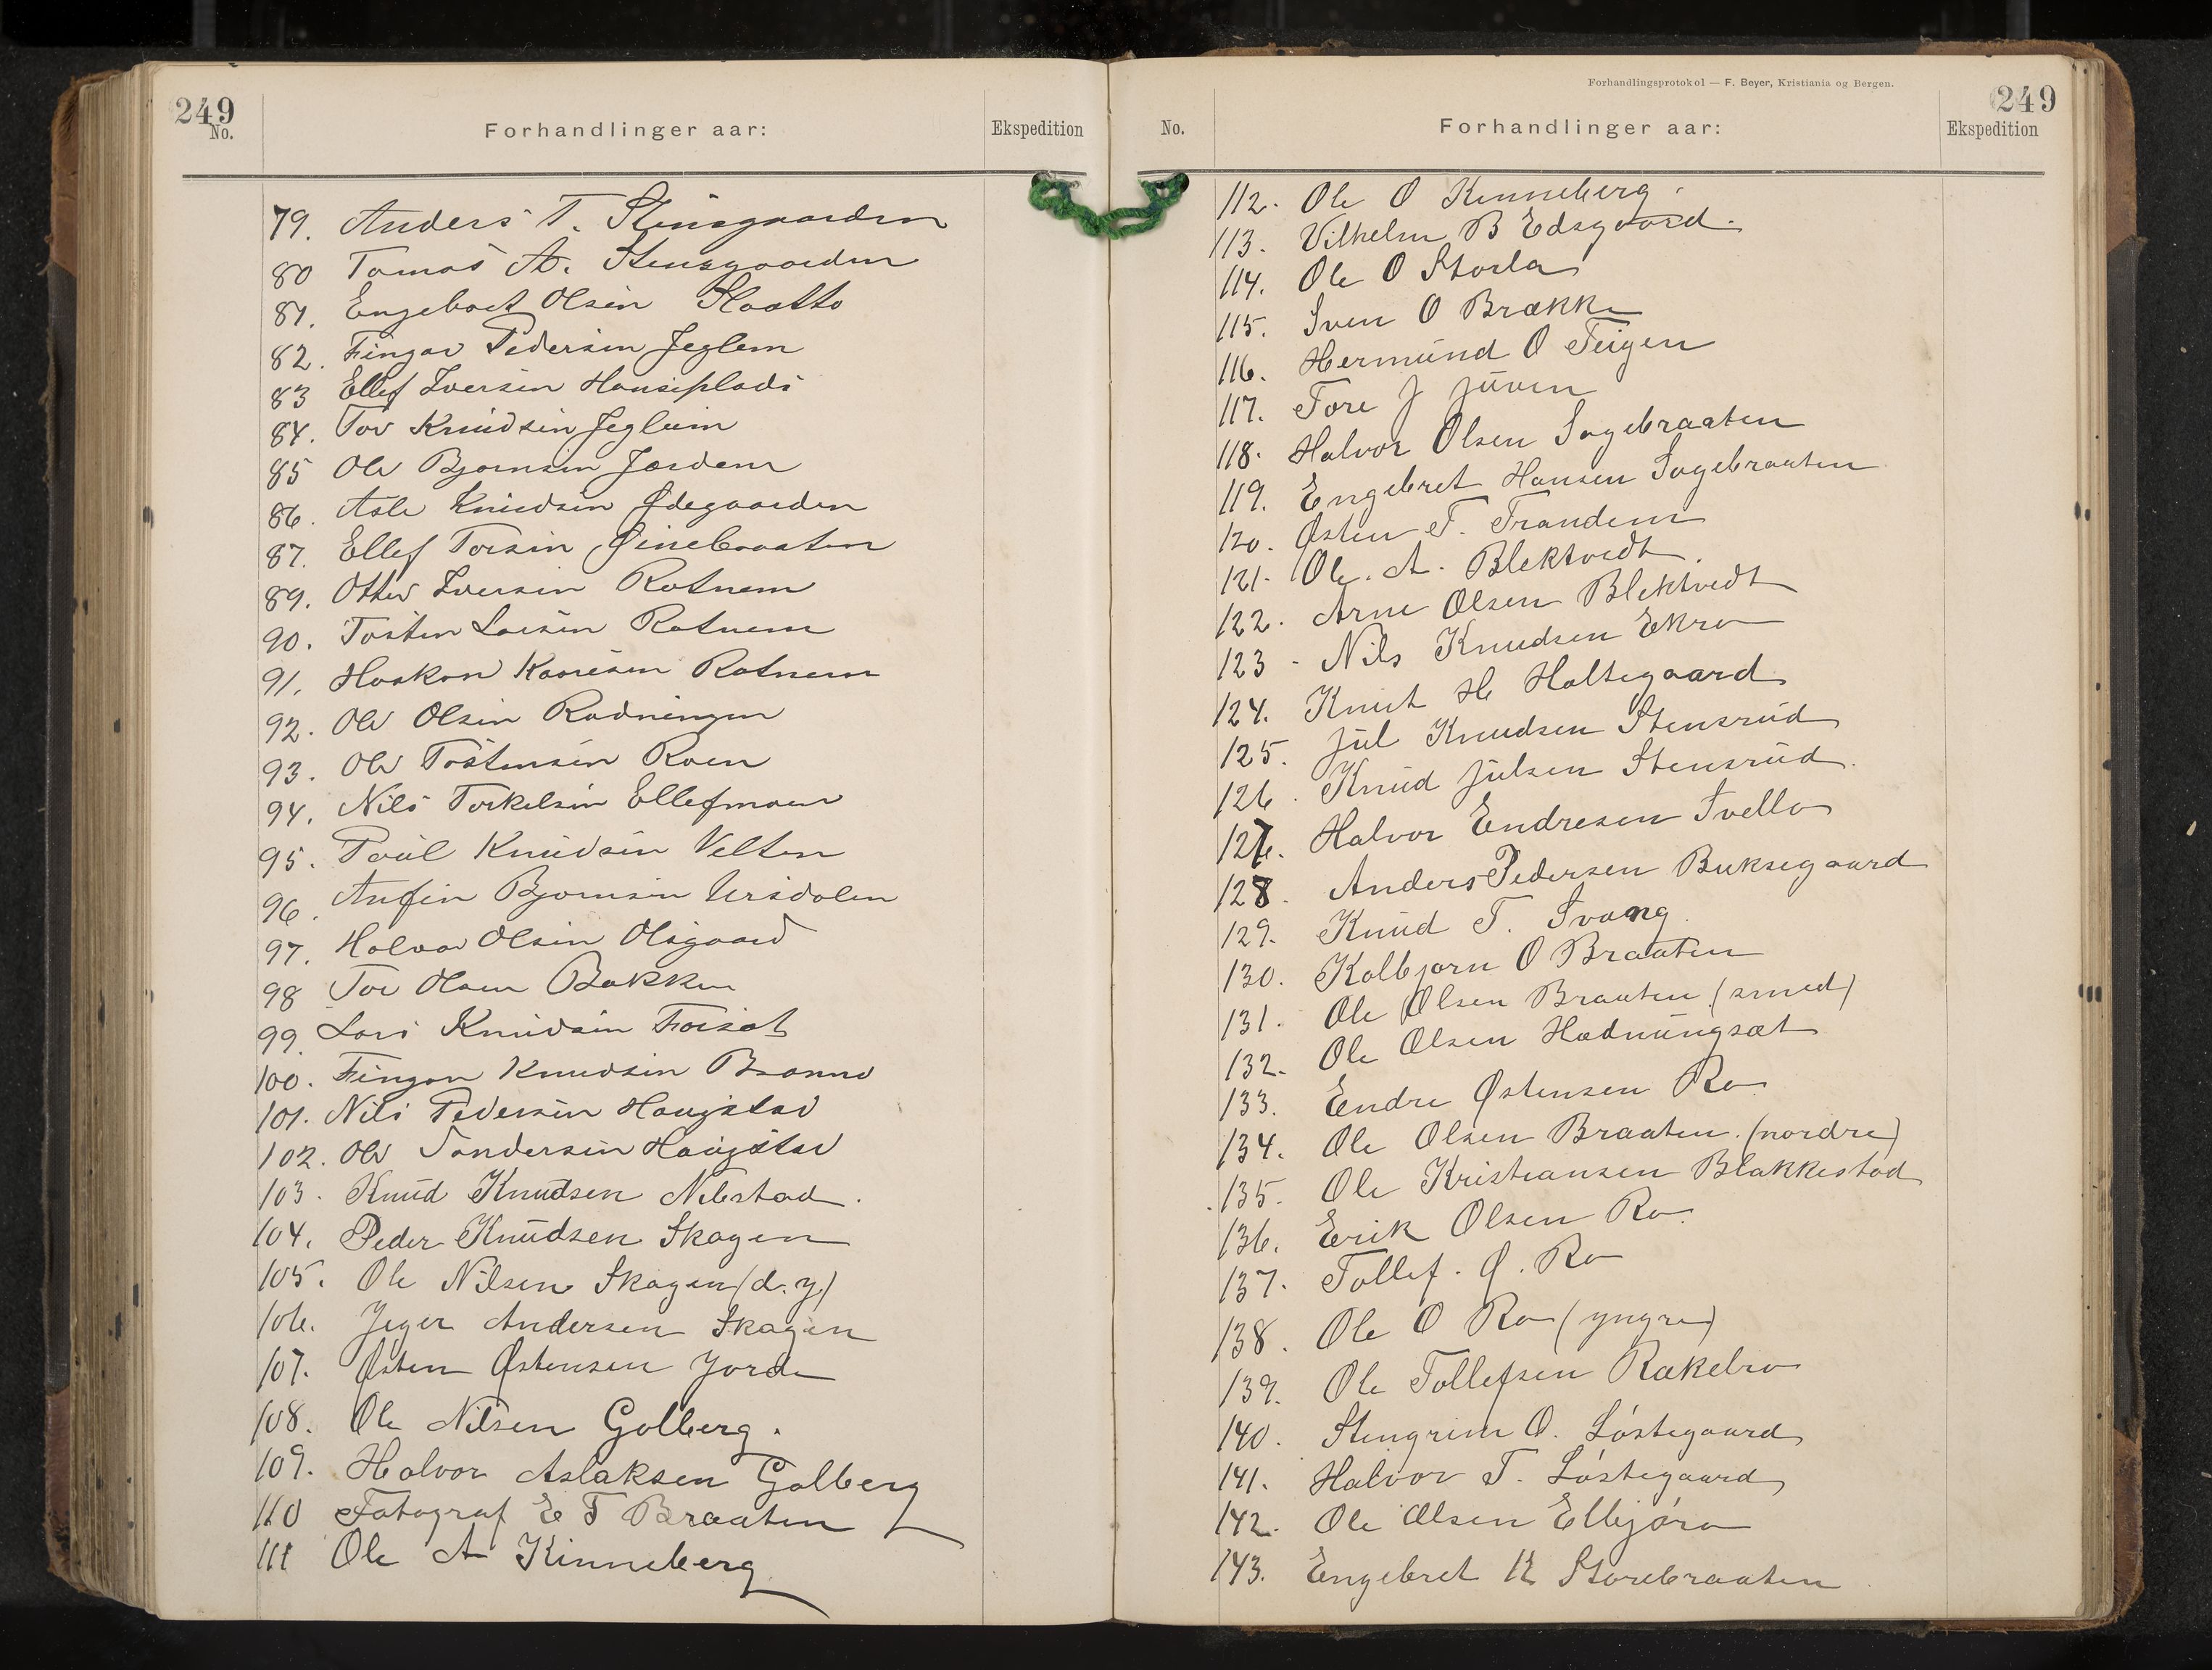 249
No.
Forhandlinger aar:
Ekspedition
79. Anders T. Stensgaarden
80 Tomas A. Stensgaarden
81. Engebret Olsen Slaatto
82. Fingar Pedersen Jeglem
83 Ellef Iversen Hanseplads
84. Tov Knudsen Jegleim
85 Ole Bjørnsen Jordem
86. Asle Knudsen Ødegaarden
87. Ellef Torsen Øinebraaten
89. Otter Iversen Rotnem
90. Tosten Larsen Rotnem
91. Haakon Kaaresen Rotnem
92. Ole Olsen Rudningen
93. Ole Tostensen Roen
94. Nils Torkelsen Ellefmoen
95. Paul Knudsen Velten
96. Anfin Bjørnsen Ursdalen
97. Halvor Olsen Olsgaard
98 Tov Olsen Bakken
99. Lars Knudsen Forsat
100. Fingar Knudsen Brenno
101. Nils Pedersen Haugstad
102. Ole Sandersen Haugstad
103. Knud Knudsen Nibstad.
104. Peder Knudsen Skagen
105. Ole Nilsen Skagen (d. y.)
106. Jeger Andersen Skagen
107. Østen Østensen Jorde
108. Ole Nilsen Golberg.
109. Halvor Aslaksen Golberg
110 Fotograf E T Braaten
111 Ole A Kinneberg
Forhandlingsprotokol — F. Beyer, Kristiania og Bergen.
249
No.
Forhandlinger aar:
Ekspedition
112. Ole O Kinneberg.
113. Vilhelm B Edsgaard.
114. Ole O Storla
115. Sven O Brække
116. Hermund O Teigen
117. Tore J Juven
118. Halvor Olsen Sagebraaten
119. Engebret Hansen Sagebraaten
120. Østen T. Trandem
121. Ole. A. Blektvedt.
122. Arne Olsen Blektvedt
123 - Nils Knudsen Ekra
124. Knut H Haltegaard
125. Jul Knudsen Stensrud
126. Knud Julsen Stensrud.
127. Halvor Endresen Svello
128. Anders Pedersen Buksegaard
129. Knud T. Svang.
130. Kolbjørn O Braaten
131. Ole Olsen Braaten (smed)
132. Ole Olsen Hadnungsæt
133. Endre Østensen Ro.
134. Ole Olsen Braaten. (nordre)
135. Ole Kristiansen Blakkestad
136. Erik Olsen Ro.
137. Tollef. Ø. Ro
138. Ole O Ro (yngre)
139. Ole Tollefsen Rakebro
140. Stengrim O. Løstegaard
141. Halvor T. Løstegaard
142. Ole Olsen Elbjøra
143. Engebret K Storebraaten